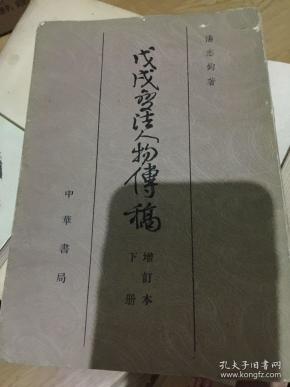 湯志鈞著
戊戌變法人物傳稿
增訂本
下册
中華書局
孔夫子旧书网